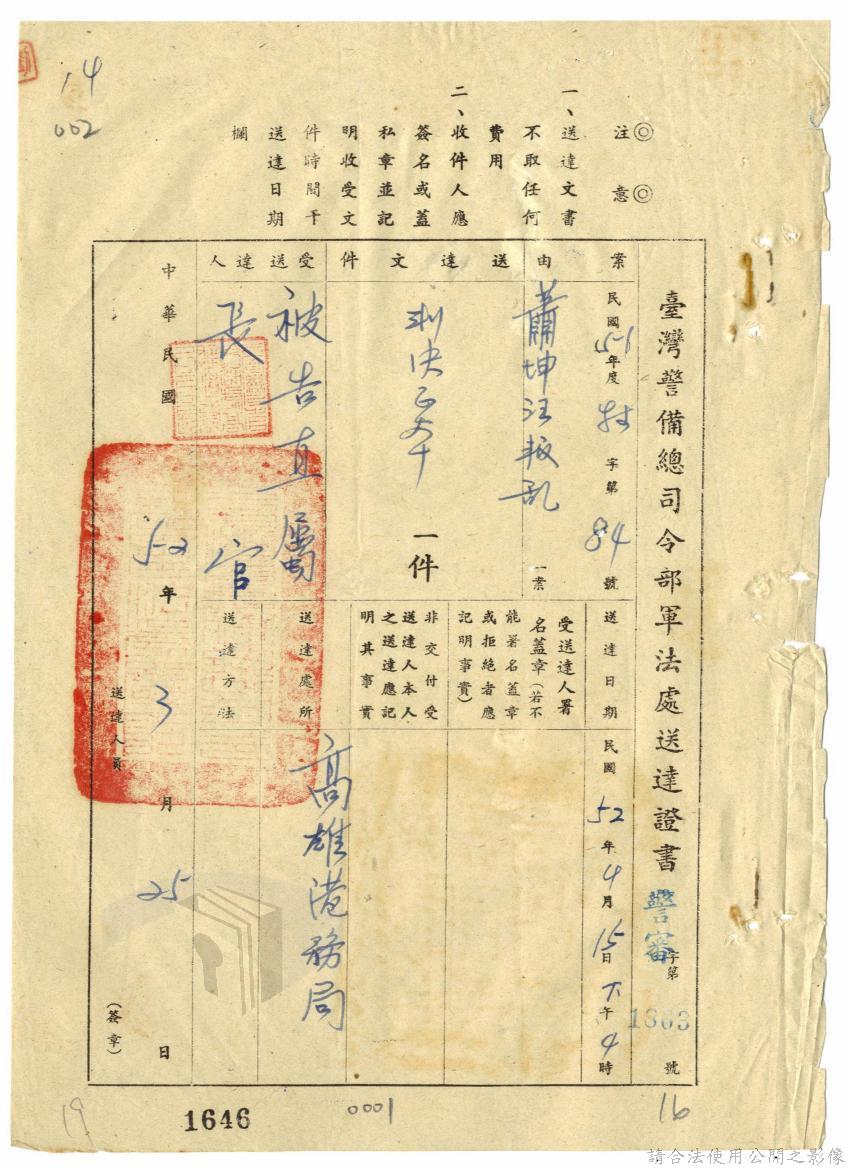 14
002
注意
一、送達文書
不取任何
費用
二、收件人應
簽名或蓋
私章並記
明收受文
件時間于
送達日期
欄
臺灣警備總司令部軍法處送達證書
警審字第1863號
案由
民國51年度
字第84號
蕭坤汪叛乱
一案
送達文件
判決正本
一件
受送達人
被告直屬
長官
送達日期
民國52年4月15日下午4時
受送達人署
名蓋章（若不
能署名蓋章
或拒絕者應
記明事實）
非交付受
送達人本人
之送達應記
明其事實
送達處所
高雄港務局
送達方法
中華民國52年3月25日
送達人員
（簽章）
19
1646
0001
16
請合法使用公開之影像